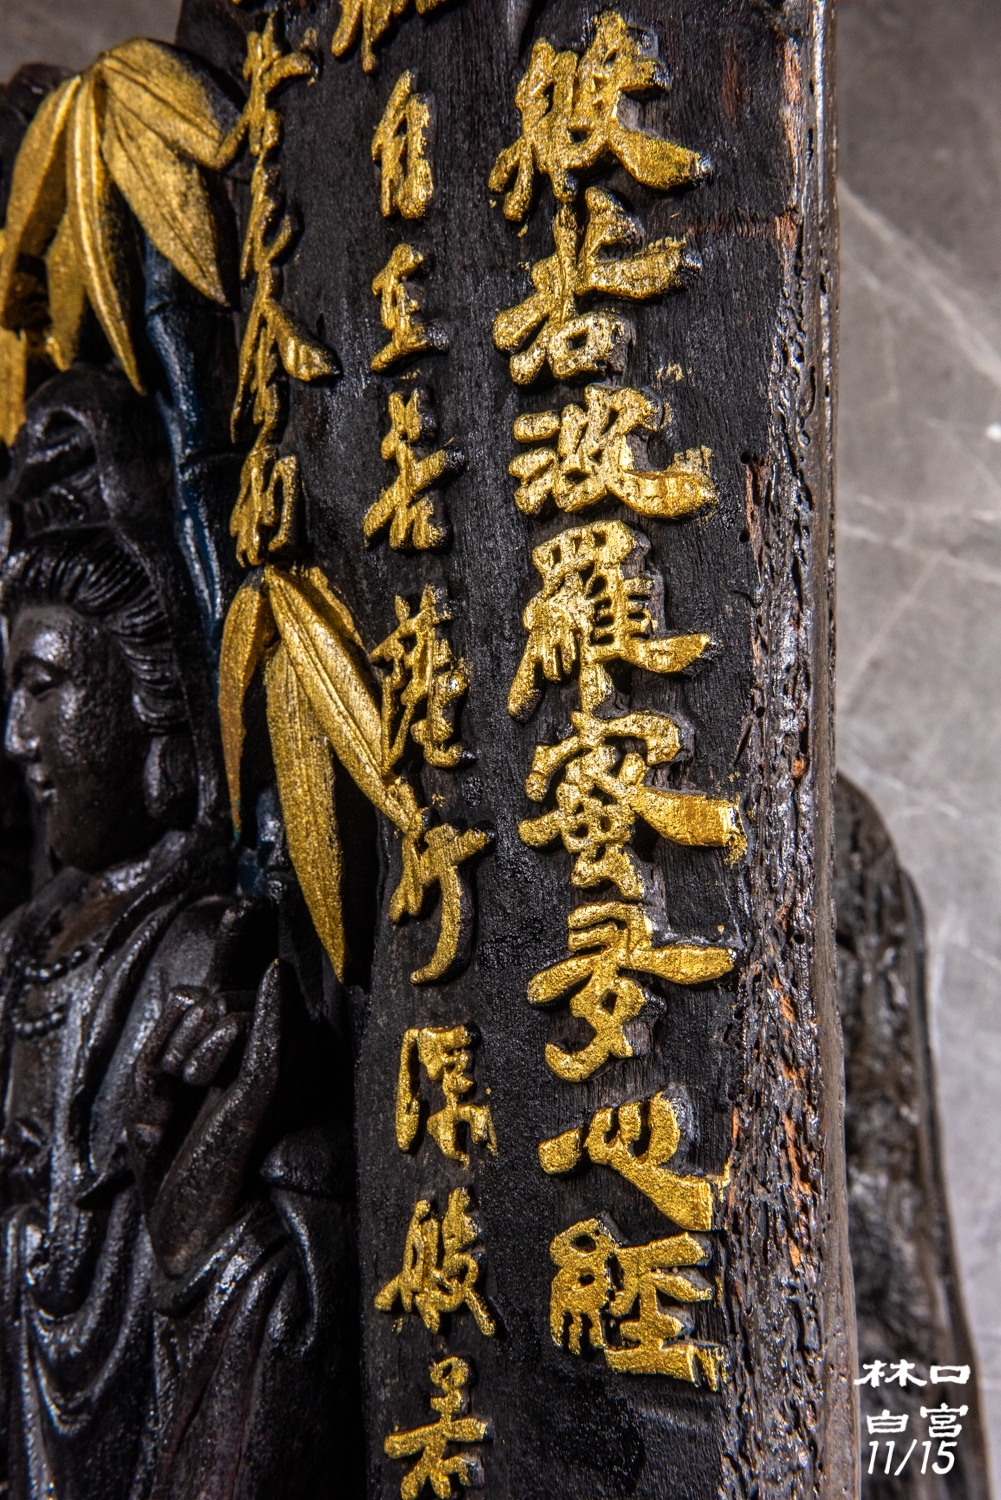 般若波羅蜜多心經
自在菩薩行深般若
林口
白宮
11/15